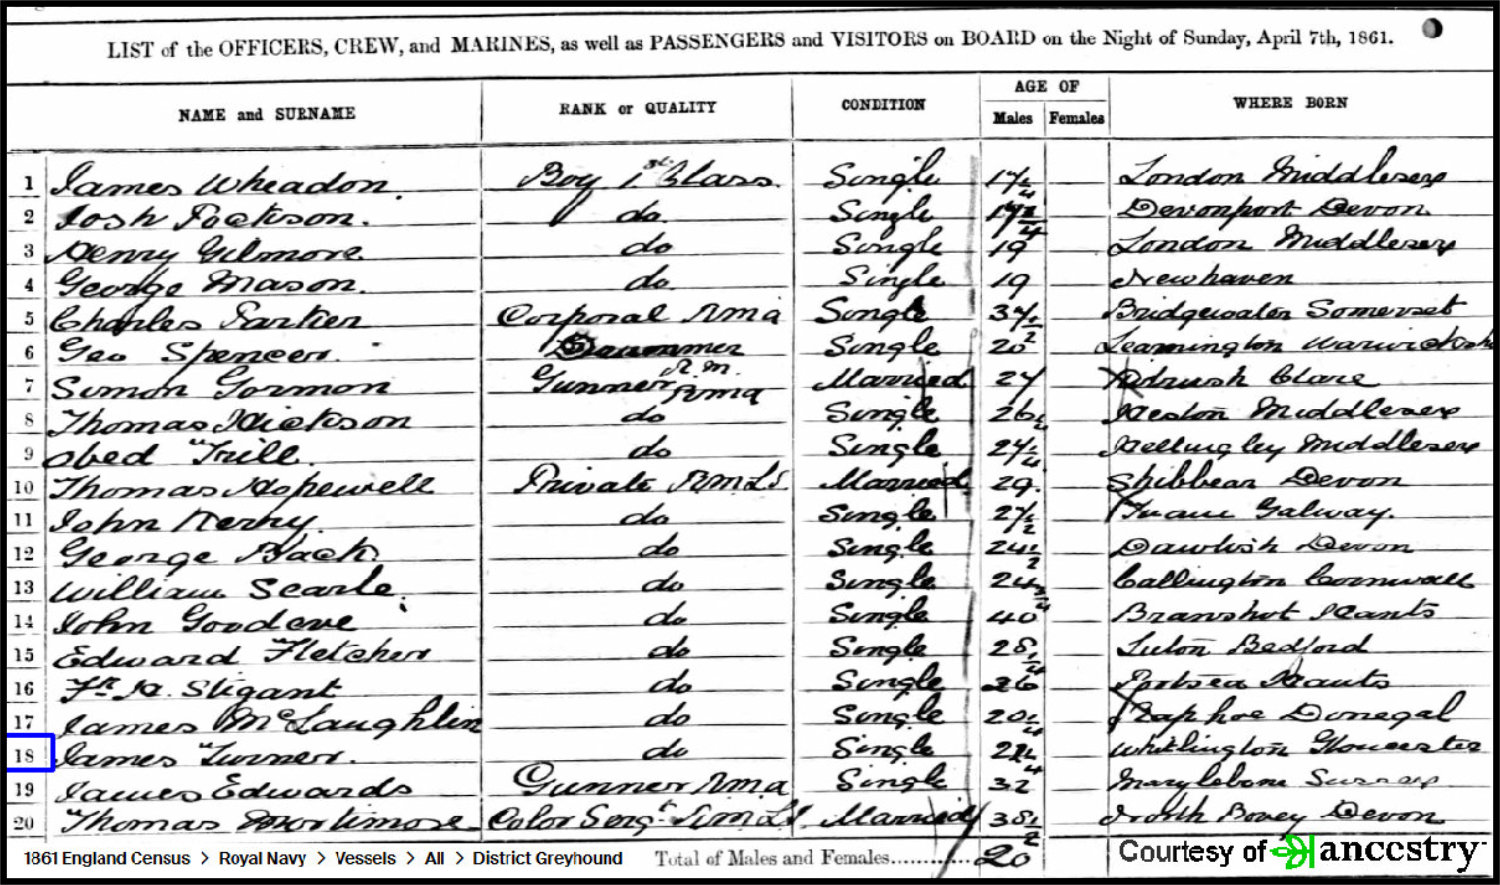 LIST of the OFFICERS, CREW, and MARINES, as well as PASSENGERS and VISITORS on BOARD on the Night of Sunday, April 7th, 1861.
NAME and SURNAME RANK or QUALITY CONDITION AGE OF Males Females WHERE BORN
1 James Wheadon. Boy 1st Class Single 17 London Middlesex
2 Josh Jackson. do. Single 17 Devonport Devon
3 Henry Gilmore do Single 19 London Middlesex
4 George Mason. do. Single 19 Newhaven
5 Charles Parker Corporal RMA Single 34 1/2 Bridgewater Somerset
6 Geo Spencer. Drummer R.M. Single 20 Leamington Warwicksh
7 Simon Gormon Gunner RMA Married 27 Clare
8 Thomas Hickson do Single 26 Heston Middlesex
9 Obed Trill. do Single 24 Middlesex
10 Thomas Hopewell Private RMLI. Married 29. Shibbear Devon
11 John Kerry. do Single 27 1/2 Tuam Galway.
12 George Black. do Single 24 1/2 Dawlish Devon
13 William Searle. do Single 24 3/4 Callington Cornwall
14 John Goodeve do Single 40 Bramshot Hants
15 Edward Fletcher do Single 28 Luton Bedford
16 Stigant do Single 26 Portsea Hants
17 James McLaughlin do Single 20 Raphoe Donegal
18 James Turner. do Single 21 Whittington Gloucester
19 James Edwards Gunner RMA Single 32 Marylebone Surrey
20 Thomas Mortimore Color Sergt RMLI Married 38 1/2 North Bovey Devon
1861 England Census > Royal Navy > Vessels > All > District Greyhound Total of Males and Females............ 20 Courtesy of ancestry